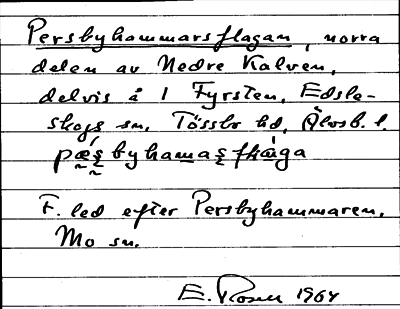 Persbyhammarsflagan, norra
delen av Nedre Kalven,
delvis å 1 Fyrsten, Edsle-
skogs sn. Tössbo hd, Älvsb. l.
F. led efter Persbyhammaren,
Mo sn.
E. Rosell 1964